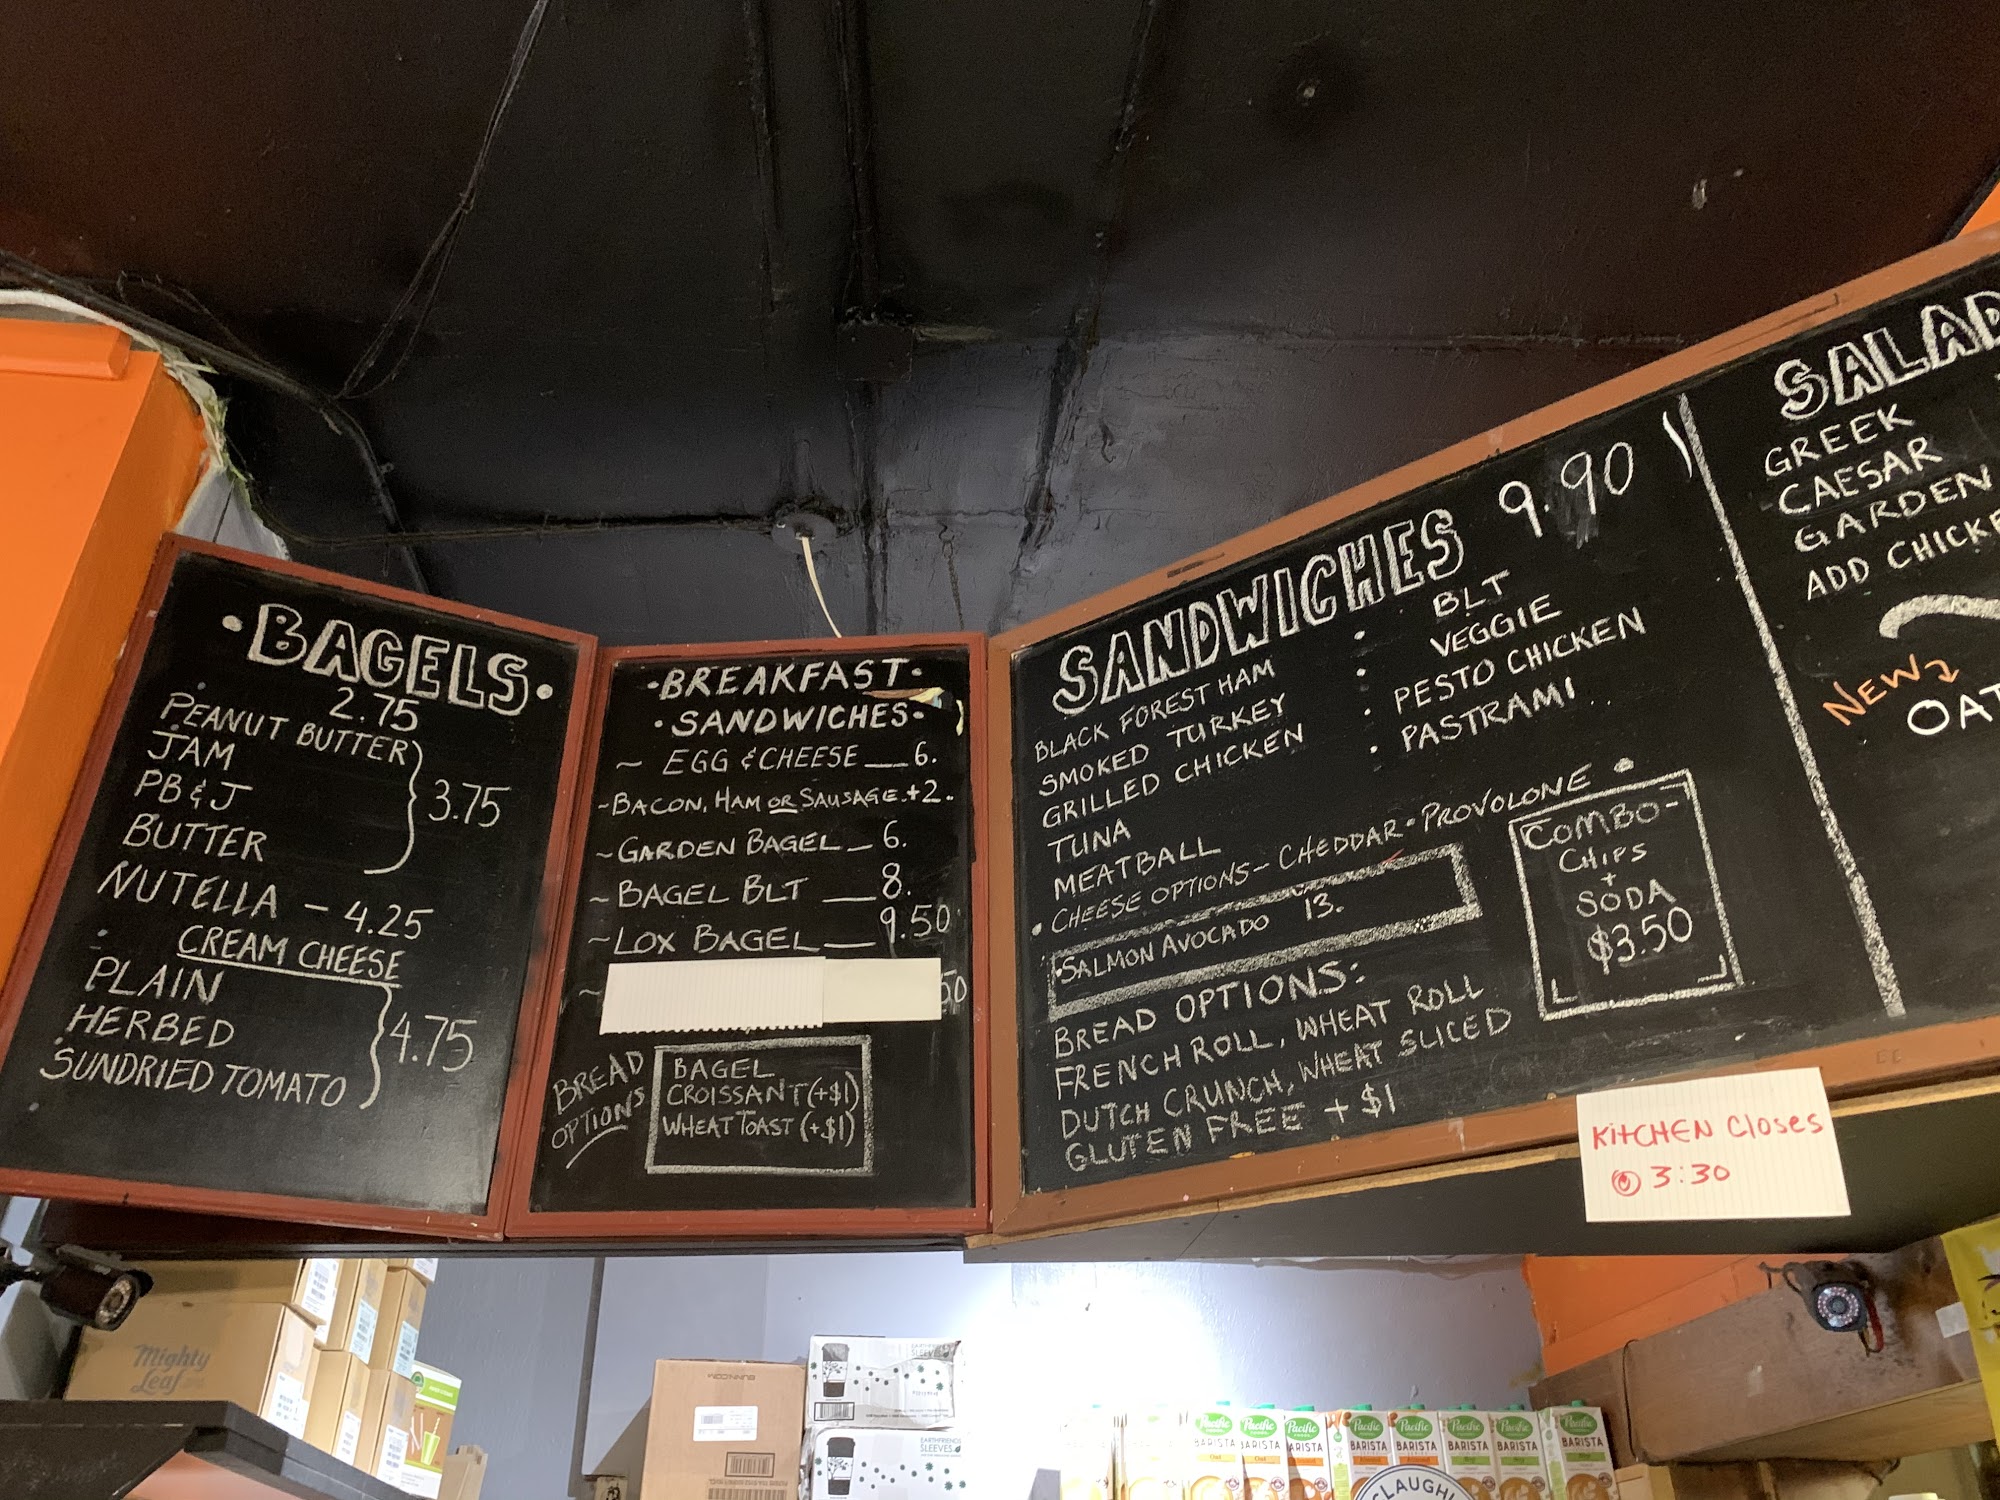 • BAGELS •
2.75
PEANUT BUTTER
JAM
PB & J
BUTTER
3.75
NUTELLA - 4.25
CREAM CHEESE
PLAIN
HERBED
SUNDRIED TOMATO
4.75
• BREAKFAST •
• SANDWICHES •
~ EGG & CHEESE __ 6.
~ BACON, HAM OR SAUSAGE. +2.
~ GARDEN BAGEL _ 6.
~ BAGEL BLT __ 8.
~ LOX BAGEL __ 9.50
~ 50
BREAD OPTIONS
BAGEL
CROISSANT (+$1)
WHEAT TOAST (+$1)
SANDWICHES 9.90
BLACK FOREST HAM
SMOKED TURKEY
GRILLED CHICKEN
TUNA
MEATBALL
• BLT
• VEGGIE
• PESTO CHICKEN
• PASTRAMI
• CHEESE OPTIONS - CHEDDAR • PROVOLONE •
• SALMON AVOCADO 13.
COMBO -
CHIPS
+
SODA
$3.50
BREAD OPTIONS:
FRENCH ROLL, WHEAT ROLL
DUTCH CRUNCH, WHEAT SLICED
GLUTEN FREE + $1
SALAD
GREEK
CAESAR
GARDEN
ADD CHICKE
NEW
OAT
KITCHEN Closes
@ 3:30
Mighty
Leaf
EARTHFRIENDLY
SLEEVES
Pacific
BARISTA
Pacific
BARISTA
Pacific
BARISTA
Pacific
BARISTA
Pacific
BARISTA
Pacific
BARISTA
Pacific
BARISTA
Pacific
BARISTA
CLAUGH